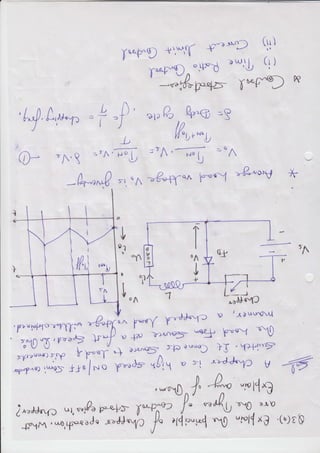 Q3(a). Explain the principle of chopper operation. what
are the Types of Control strategies in chopper?
Explain any of them.
Sol A chopper is a high speed ON/off Semi conductor
Switch. It Connects source to load & disconnects
the load from source at a fast speed. In this
manner, a chopped load voltage will be obtained
Chopper
Vs
FD
L
Load
V0
Vs
TON Toff
* Average load voltage V0 is given by
V0 = TON / (TON + Toff) . Vs = TON / T . Vs = δ.Vs — ①
δ = Duty cycle, f = 1/T = chopping freq.
* Control Strategies —
(i) Time Ratio Control
(ii) Current limit Control